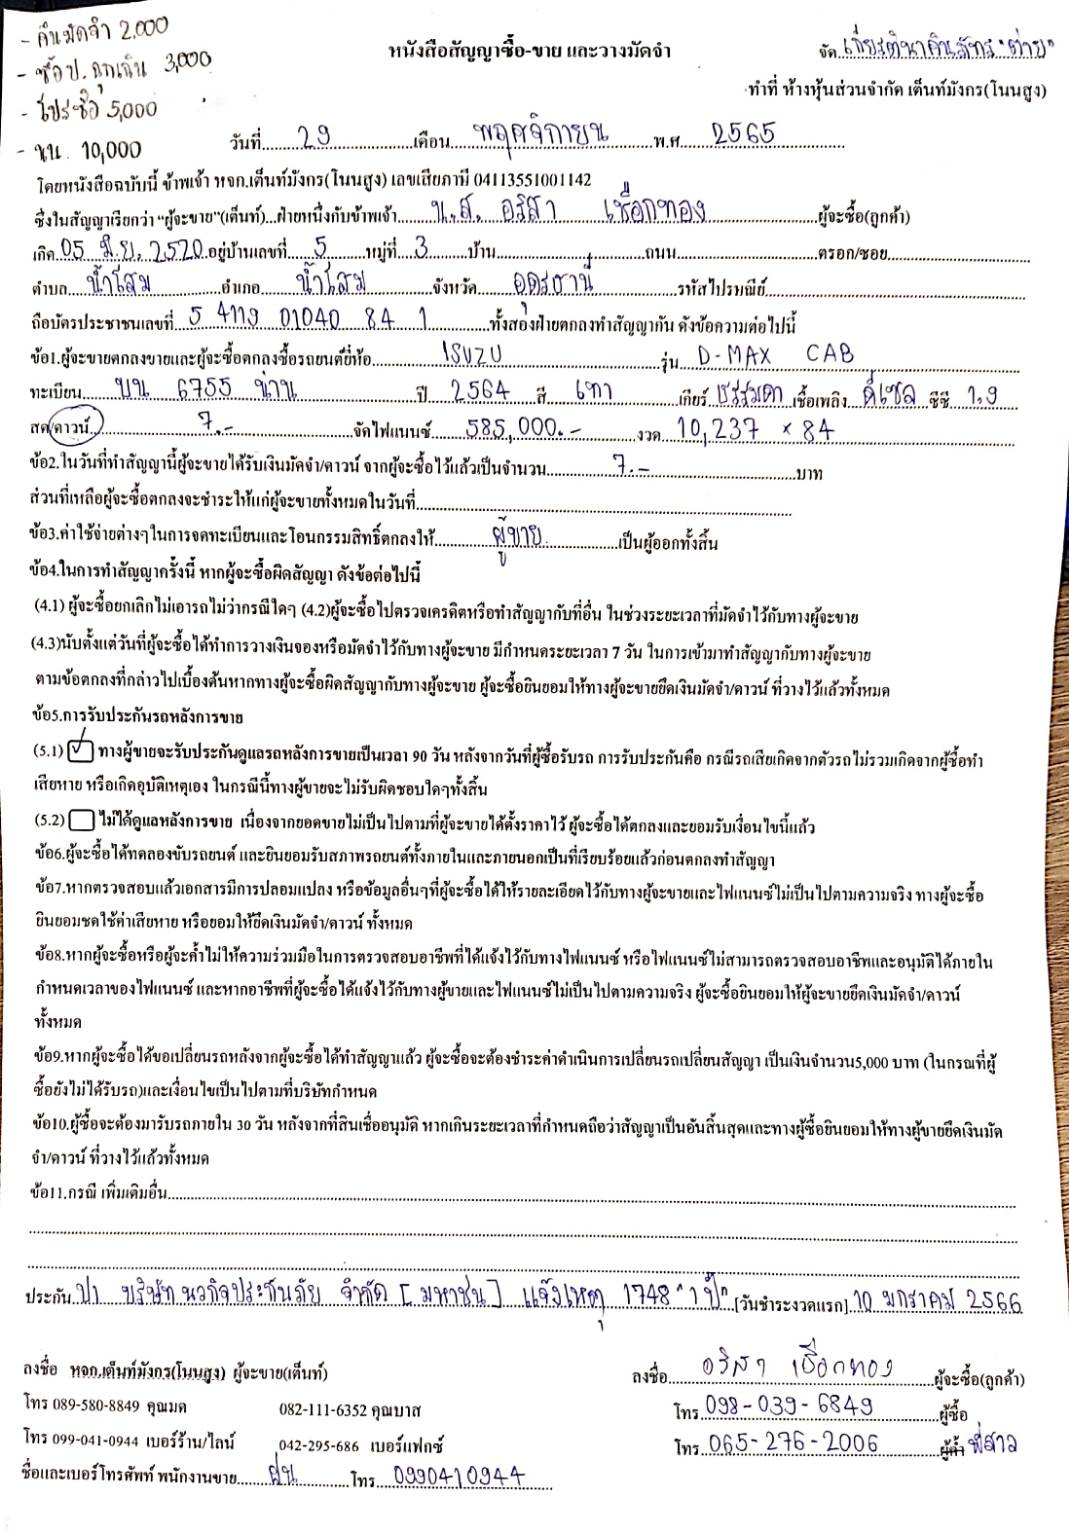 - คืนมัดจำ 2,000
- ช้อป.ฉุกเฉิน 3,000
- โปรซื้อ 5,000
- นน. 10,000
หนังสือสัญญาซื้อ-ขาย และวางมัดจำ
จัด เกียรตินาคินภัทร "ต่าย"
ทำที่ ห้างหุ้นส่วนจำกัด เต็นท์มังกร(โนนสูง)
วันที่ 29 เดือน พฤศจิกายน พ.ศ 2565
โดยหนังสือฉบับนี้ ข้าพเจ้า หจก.เต็นท์มังกร(โนนสูง) เลขเสียภาษี 04113551001142
ซึ่งในสัญญาเรียกว่า "ผู้จะขาย"(เต็นท์)...ฝ่ายหนึ่งกับข้าพเจ้า น.ส. อริสา เชือกทอง ผู้จะซื้อ(ลูกค้า)
เกิด 05 มิ.ย. 2520 อยู่บ้านเลขที่ 5 หมู่ที่ 3 บ้าน ถนน ตรอก/ซอย
ตำบล น้ำโสม อำเภอ น้ำโสม จังหวัด อุดรธานี รหัสไปรษณีย์
ถือบัตรประชาชนเลขที่ 5 4119 01040 84 1 ทั้งสองฝ่ายตกลงทำสัญญากัน ดังข้อความต่อไปนี้
ข้อ1.ผู้จะขายตกลงขายและผู้จะซื้อตกลงซื้อรถยนต์ยี่ห้อ ISUZU รุ่น D-MAX CAB
ทะเบียน บน 6755 น่าน ปี 2564 สี เทา เกียร์ ธรรมดา เชื้อเพลิง ดีเซล ซีซี 1.9
สด/ดาวน์ 7.- จัดไฟแนนซ์ 585,000.- งวด 10,237 × 84
ข้อ2.ในวันที่ทำสัญญานี้ผู้จะขายได้รับเงินมัดจำ/ดาวน์ จากผู้จะซื้อไว้แล้วเป็นจำนวน 7.- บาท
ส่วนที่เหลือผู้จะซื้อตกลงจะชำระให้แก่ผู้จะขายทั้งหมดในวันที่
ข้อ3.ค่าใช้จ่ายต่างๆในการจดทะเบียนและโอนกรรมสิทธิ์ตกลงให้ ผู้ขาย เป็นผู้ออกทั้งสิ้น
ข้อ4.ในการทำสัญญาครั้งนี้ หากผู้จะซื้อผิดสัญญา ดังข้อต่อไปนี้
(4.1) ผู้จะซื้อยกเลิกไม่เอารถไม่ว่ากรณีใดๆ (4.2)ผู้จะซื้อไปตรวจเครดิตหรือทำสัญญากับที่อื่น ในช่วงระยะเวลาที่มัดจำไว้กับทางผู้จะขาย
(4.3)นับตั้งแต่วันที่ผู้จะซื้อได้ทำการวางเงินจองหรือมัดจำไว้กับทางผู้จะขาย มีกำหนดระยะเวลา 7 วัน ในการเข้ามาทำสัญญากับทางผู้จะขาย
ตามข้อตกลงที่กล่าวไปเบื้องต้นหากทางผู้จะซื้อผิดสัญญากับทางผู้จะขาย ผู้จะซื้อยินยอมให้ทางผู้จะขายยึดเงินมัดจำ/ดาวน์ ที่วางไว้แล้วทั้งหมด
ข้อ5.การรับประกันรถหลังการขาย
(5.1) ✓ ทางผู้ขายจะรับประกันดูแลรถหลังการขายเป็นเวลา 90 วัน หลังจากวันที่ผู้ซื้อรับรถ การรับประกันคือ กรณีรถเสียเกิดจากตัวรถไม่รวมเกิดจากผู้ซื้อทำ
เสียหาย หรือเกิดอุบัติเหตุเอง ในกรณีนี้ทางผู้ขายจะไม่รับผิดชอบใดๆทั้งสิ้น
(5.2) ไม่ได้ดูแลหลังการขาย เนื่องจากยอดขายไม่เป็นไปตามที่ผู้จะขายได้ตั้งราคาไว้ ผู้จะซื้อได้ตกลงและยอมรับเงื่อนไขนี้แล้ว
ข้อ6.ผู้จะซื้อได้ทดลองขับรถยนต์ และยินยอมรับสภาพรถยนต์ทั้งภายในและภายนอกเป็นที่เรียบร้อยแล้วก่อนตกลงทำสัญญา
ข้อ7.หากตรวจสอบแล้วเอกสารมีการปลอมแปลง หรือข้อมูลอื่นๆที่ผู้จะซื้อได้ให้รายละเอียดไว้กับทางผู้จะขายและไฟแนนซ์ไม่เป็นไปตามความจริง ทางผู้จะซื้อ
ยินยอมชดใช้ค่าเสียหาย หรือยอมให้ยึดเงินมัดจำ/ดาวน์ ทั้งหมด
ข้อ8.หากผู้จะซื้อหรือผู้จะค้ำไม่ให้ความร่วมมือในการตรวจสอบอาชีพที่ได้แจ้งไว้กับทางไฟแนนซ์ หรือไฟแนนซ์ไม่สามารถตรวจสอบอาชีพและอนุมัติได้ภายใน
กำหนดเวลาของไฟแนนซ์ และหากอาชีพที่ผู้จะซื้อได้แจ้งไว้กับทางผู้ขายและไฟแนนซ์ไม่เป็นไปตามความจริง ผู้จะซื้อยินยอมให้ผู้จะขายยึดเงินมัดจำ/ดาวน์
ทั้งหมด
ข้อ9.หากผู้จะซื้อได้ขอเปลี่ยนรถหลังจากผู้จะซื้อได้ทำสัญญาแล้ว ผู้จะซื้อจะต้องชำระค่าดำเนินการเปลี่ยนรถเปลี่ยนสัญญา เป็นเงินจำนวน5,000 บาท (ในกรณที่ผู้
ซื้อยังไม่ได้รับรถ)และเงื่อนไขเป็นไปตามที่บริษัทกำหนด
ข้อ10.ผู้ซื้อจะต้องมารับรถภายใน 30 วัน หลังจากที่สินเชื่ออนุมัติ หากเกินระยะเวลาที่กำหนดถือว่าสัญญาเป็นอันสิ้นสุดและทางผู้ซื้อยินยอมให้ทางผู้ขายยึดเงินมัด
จำ/ดาวน์ ที่วางไว้แล้วทั้งหมด
ข้อ11.กรณี เพิ่มเติมอื่น
ประกัน ป1 บริษัท นวกิจประกันภัย จำกัด [มหาชน] แจ้งเหตุ 1748 "1 ปี" [วันชำระงวดแรก] 10 มกราคม 2566
ลงชื่อ หจก.เต็นท์มังกร(โนนสูง) ผู้จะขาย(เต็นท์)
ลงชื่อ อริสา เชือกทอง ผู้จะซื้อ(ลูกค้า)
โทร 089-580-8849 คุณมด 082-111-6352 คุณบาส
โทร 098-039-6849 ผู้ซื้อ
โทร 099-041-0944 เบอร์ร้าน/ไลน์ 042-295-686 เบอร์แฟกซ์
โทร 065-276-2006 ผู้ค้ำ พี่สาว
ชื่อและเบอร์โทรศัพท์ พนักงานขาย ฝน โทร 0990410944